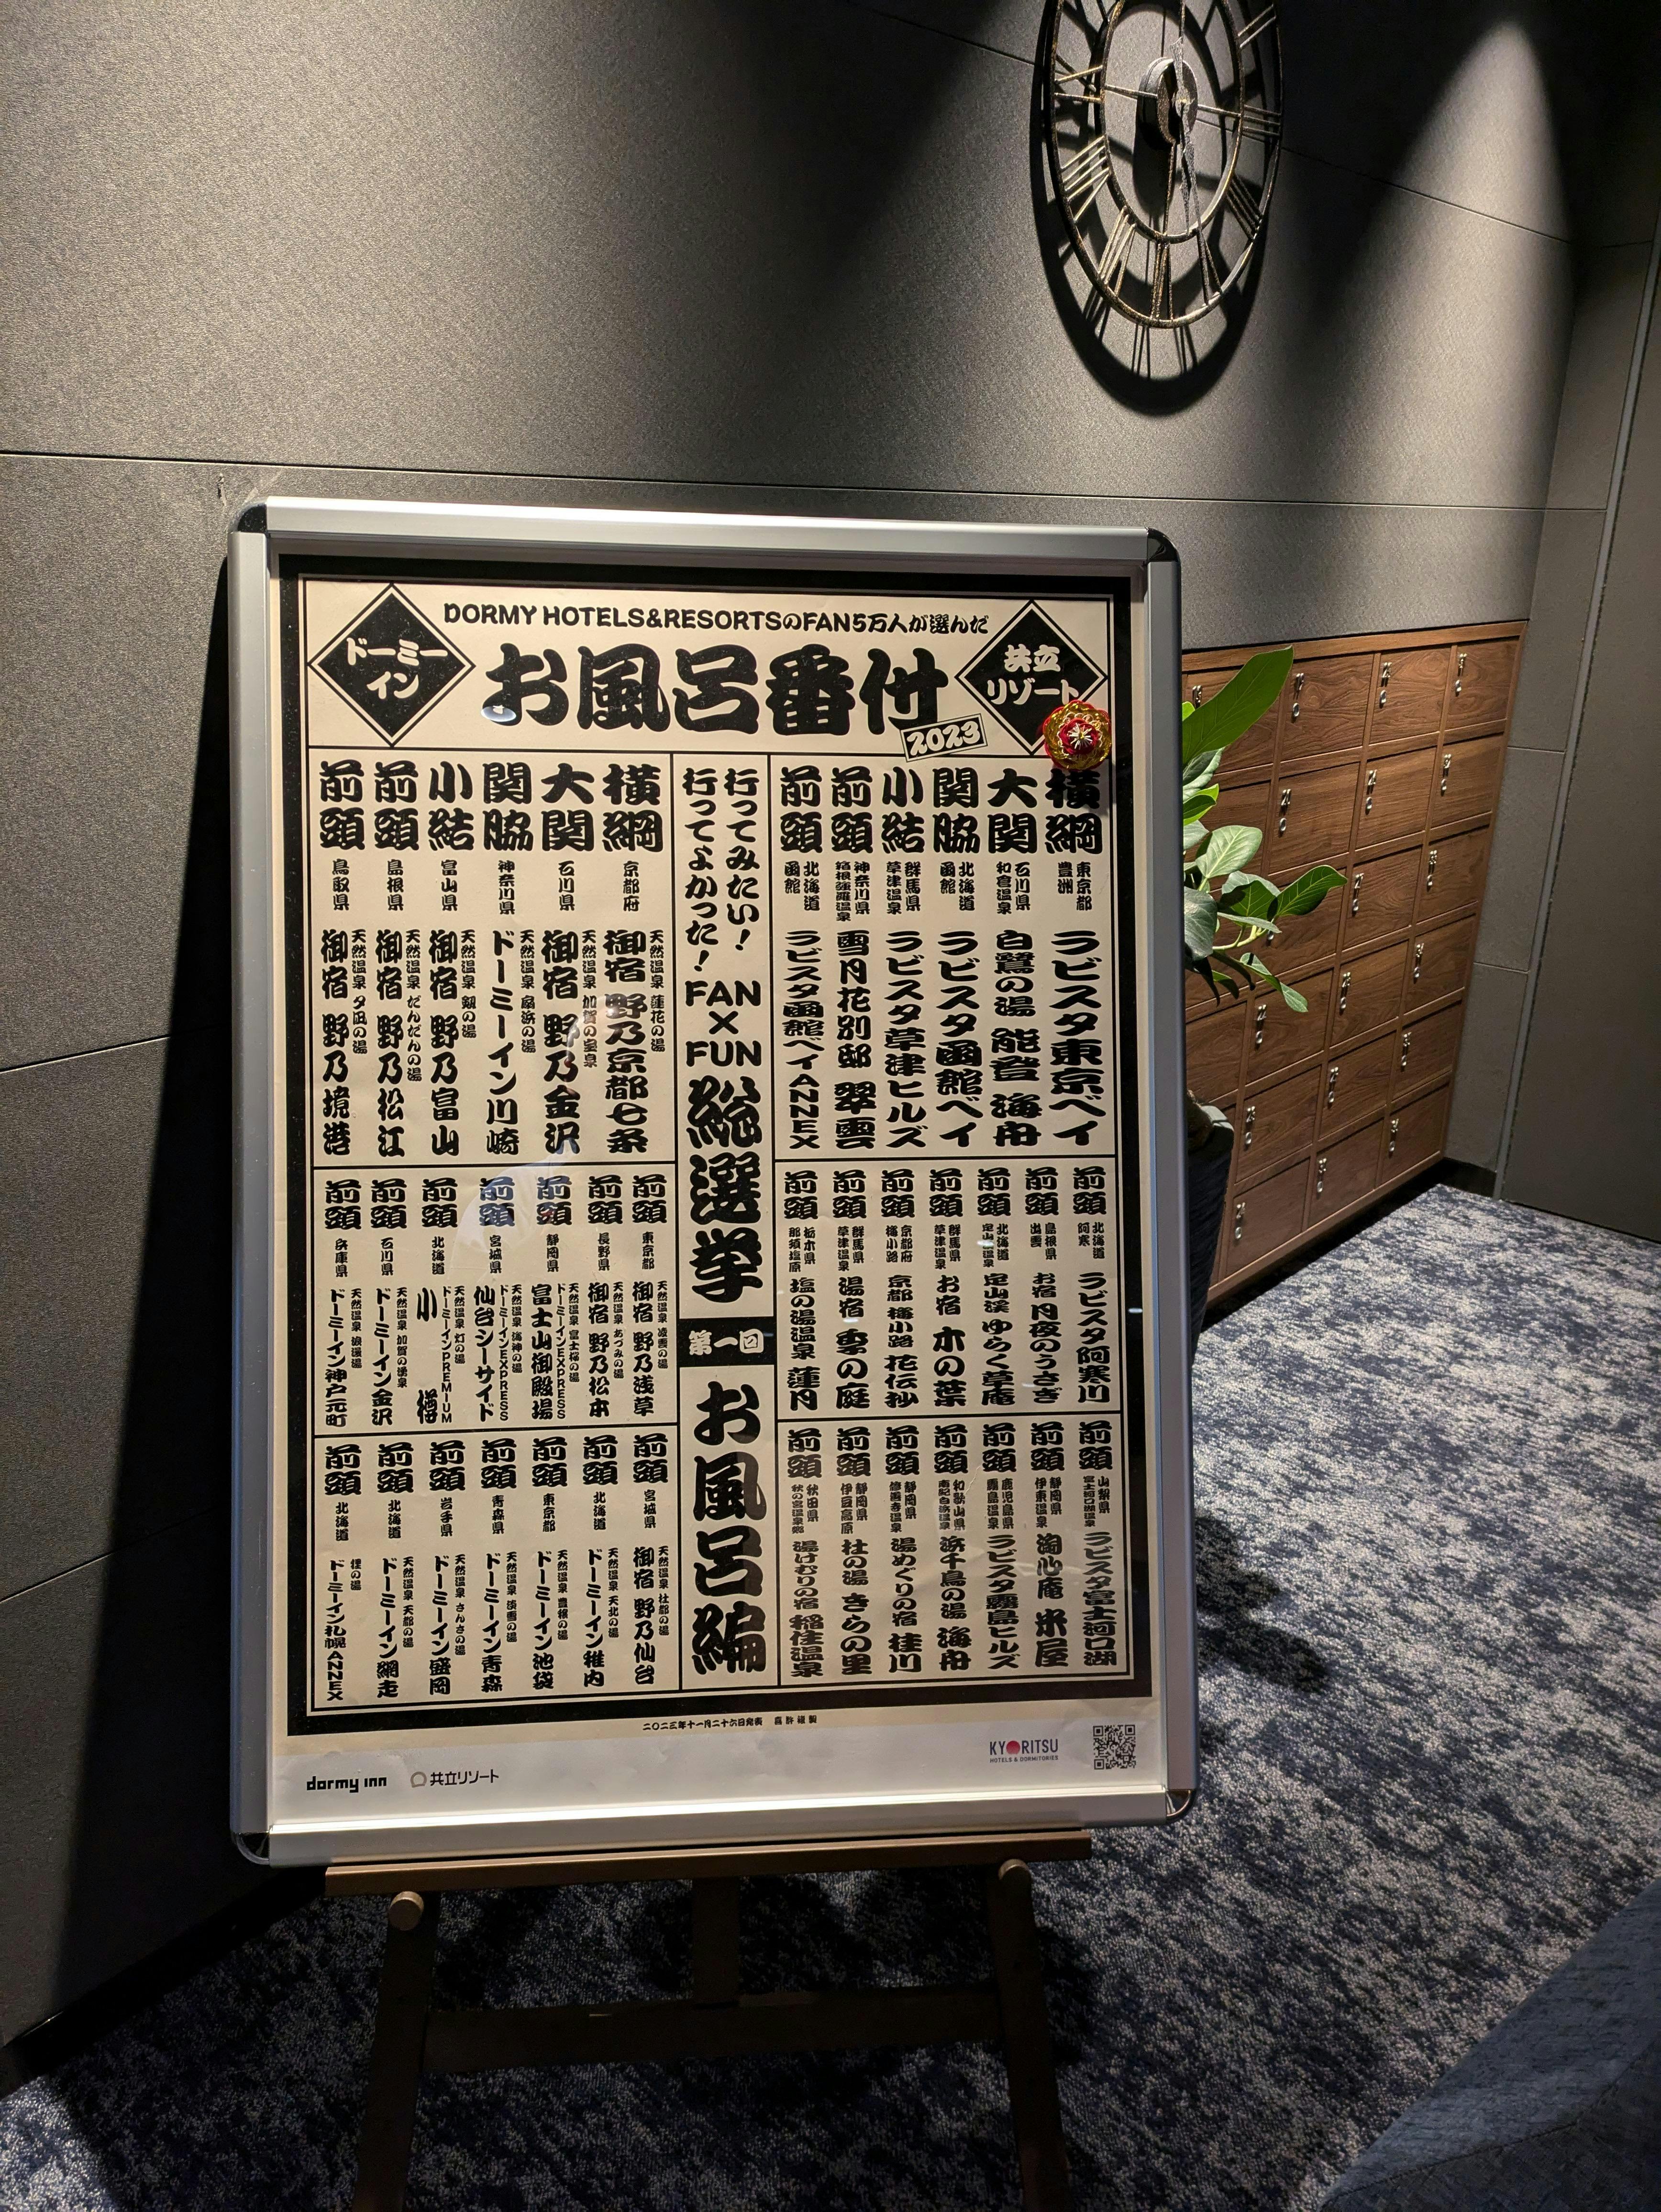 DORMY HOTELS&RESORTSのFAN5万人が選んだ
お風呂番付
2023
ドーミーイン
共立リゾート
横綱 東京都 豊洲 ラビスタ東京ベイ
大関 石川県 和倉温泉 白鷺の湯 能登 海舟
関脇 北海道 函館 ラビスタ函館ベイ
小結 群馬県 草津温泉 ラビスタ草津ヒルズ
前頭 神奈川県 箱根強羅温泉 雪月花別邸 翠雲
前頭 北海道 函館 ラビスタ函館ベイANNEX
前頭 北海道 阿寒 ラビスタ阿寒川
前頭 島根県 出雲 お宿 月夜のうさぎ
前頭 北海道 定山渓温泉 定山渓 ゆらく草庵
前頭 群馬県 草津温泉 お宿 木の葉
前頭 京都府 梅小路 京都 梅小路 花伝抄
前頭 群馬県 草津温泉 湯宿 季の庭
前頭 栃木県 那須塩原 塩の湯温泉 蓮月
前頭 山梨県 富士河口湖温泉 ラビスタ富士河口湖
前頭 静岡県 伊東温泉 淘心庵 米屋
前頭 鹿児島県 霧島温泉 ラビスタ霧島ヒルズ
前頭 和歌山県 南紀白浜温泉 浜千鳥の湯 海舟
前頭 静岡県 修善寺温泉 湯めぐりの宿 桂川
前頭 静岡県 伊豆高原 杜の湯 きらの里
前頭 秋田県 秋の宮温泉郷 湯けむりの宿 稲住温泉
行ってみたい！
行ってよかった！
FAN×FUN 総選挙
第一回
お風呂編
横綱 京都府 天然温泉 蓮花の湯 御宿 野乃京都七条
大関 石川県 天然温泉 加賀の宝泉 御宿 野乃金沢
関脇 神奈川県 天然温泉 扇浜の湯 ドーミーイン川崎
小結 富山県 天然温泉 剱の湯 御宿 野乃富山
前頭 島根県 天然温泉 だんだんの湯 御宿 野乃松江
前頭 鳥取県 天然温泉 夕凪の湯 御宿 野乃境港
前頭 東京都 天然温泉 凌雲の湯 御宿 野乃浅草
前頭 長野県 天然温泉 あづみの湯 御宿 野乃松本
前頭 静岡県 天然温泉 富士桜の湯 ドーミーインEXPRESS 富士山御殿場
前頭 宮城県 天然温泉 海神の湯 ドーミーインEXPRESS 仙台シーサイド
前頭 北海道 天然温泉 灯の湯 ドーミーインPREMIUM 小樽
前頭 石川県 天然温泉 加賀の湧泉 ドーミーイン金沢
前頭 兵庫県 天然温泉 浪漫湯 ドーミーイン神戸元町
前頭 宮城県 天然温泉 杜都の湯 御宿 野乃仙台
前頭 北海道 天然温泉 天北の湯 ドーミーイン稚内
前頭 東京都 天然温泉 豊穣の湯 ドーミーイン池袋
前頭 青森県 天然温泉 淡雪の湯 ドーミーイン青森
前頭 岩手県 天然温泉 さんさの湯 ドーミーイン盛岡
前頭 北海道 天然温泉 天都の湯 ドーミーイン網走
前頭 北海道 狸の湯 ドーミーイン札幌ANNEX
二〇二三年十一月二十六日発表 無許複製
dormy inn
共立リゾート
KYORITSU
HOTELS & DORMITORIES